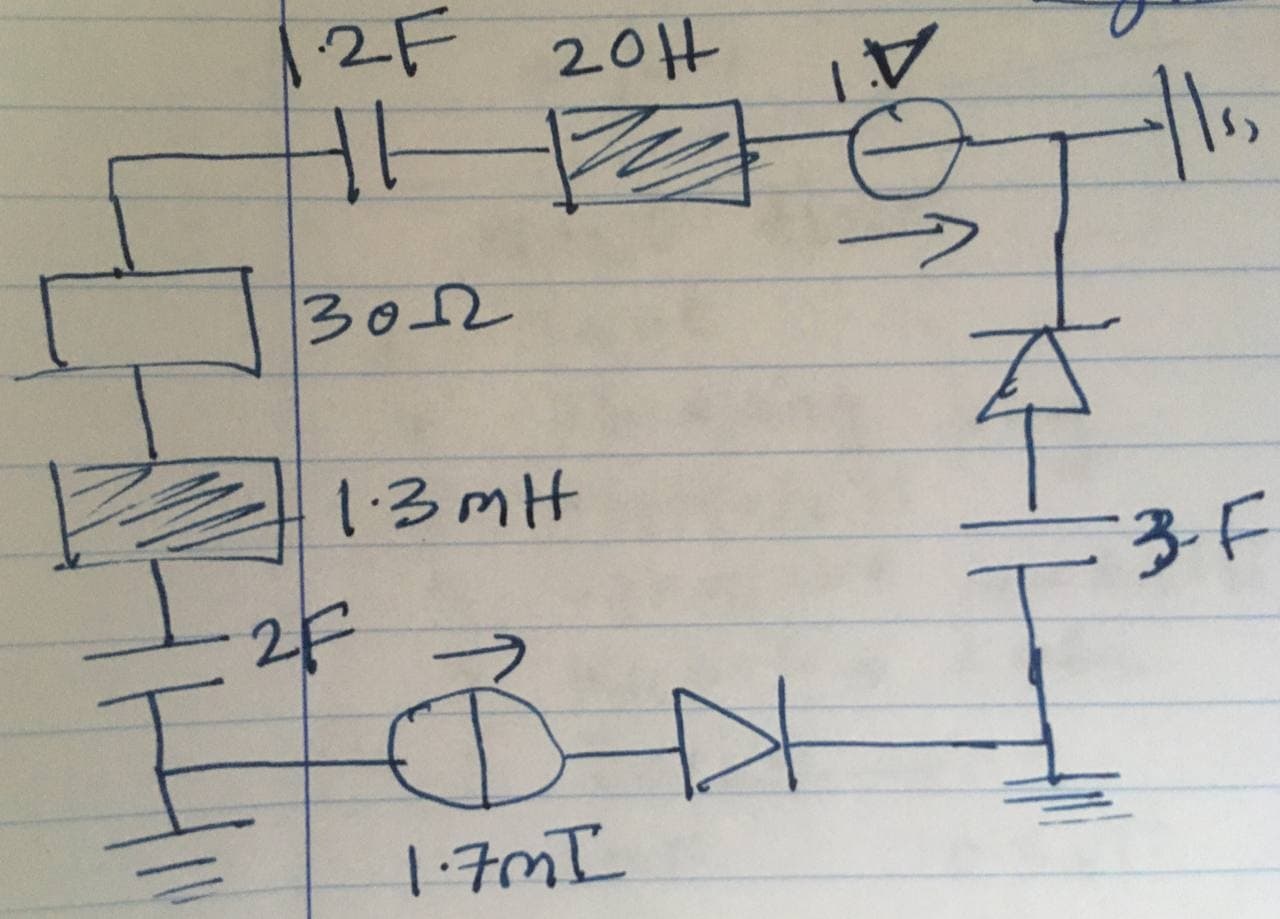 1.2F
20H
1.V
30Ω
1.3mH
3F
2F
1.7mI